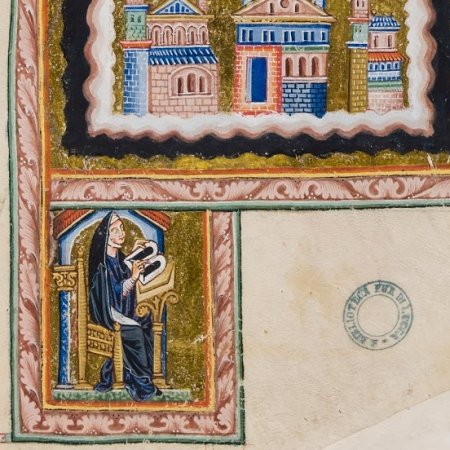 BIBLIOTECA PUB. DI LUCCA